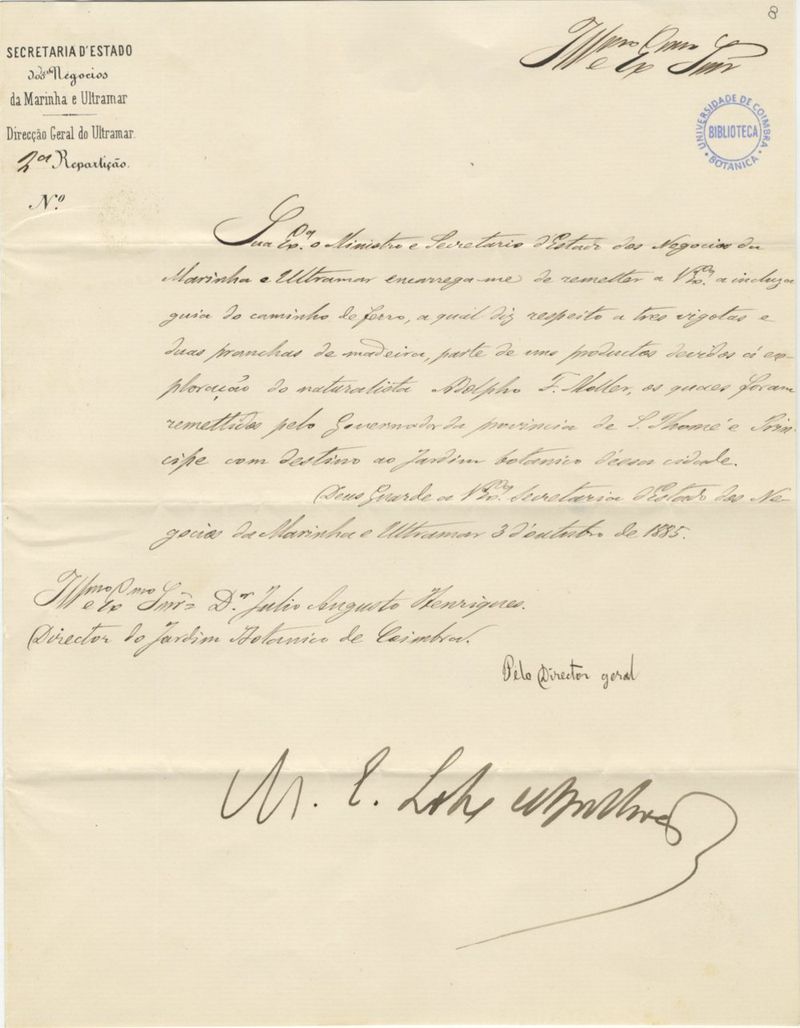 8
SECRETARIA D'ESTADO
dos Negocios
da Marinha e Ultramar
Direcção Geral do Ultramar.
2ª Repartição.
N.º
Illmo e Exmo Snr
UNIVERSIDADE DE COIMBRA
BIBLIOTECA
BOTANICA
Sua Exª. o Ministro e Secretario d'Estado dos Negocios da
Marinha e Ultramar encarrega-me de remetter a V. Exª. a incluza
guia do caminho de ferro, a qual diz respeito a tres vigotas e
duas pranchas de madeira, parte de uns productos devidos á ex-
ploração do naturalista Adolpho F. Moller, os quaes foram
remettidos pelo Governador da provincia de S. Thomé e Prin-
cipe com destino ao Jardim botanico d'essa cidade.
Deus Guarde a V. Exª. Secretaria d'Estado dos Ne-
gocios da Marinha e Ultramar 3 d'outubro de 1885.
Illmo e Exmo Snr = Dr Julio Augusto Henriques.
Director do Jardim Botanico de Coimbra.
Pelo Director geral
M. E.